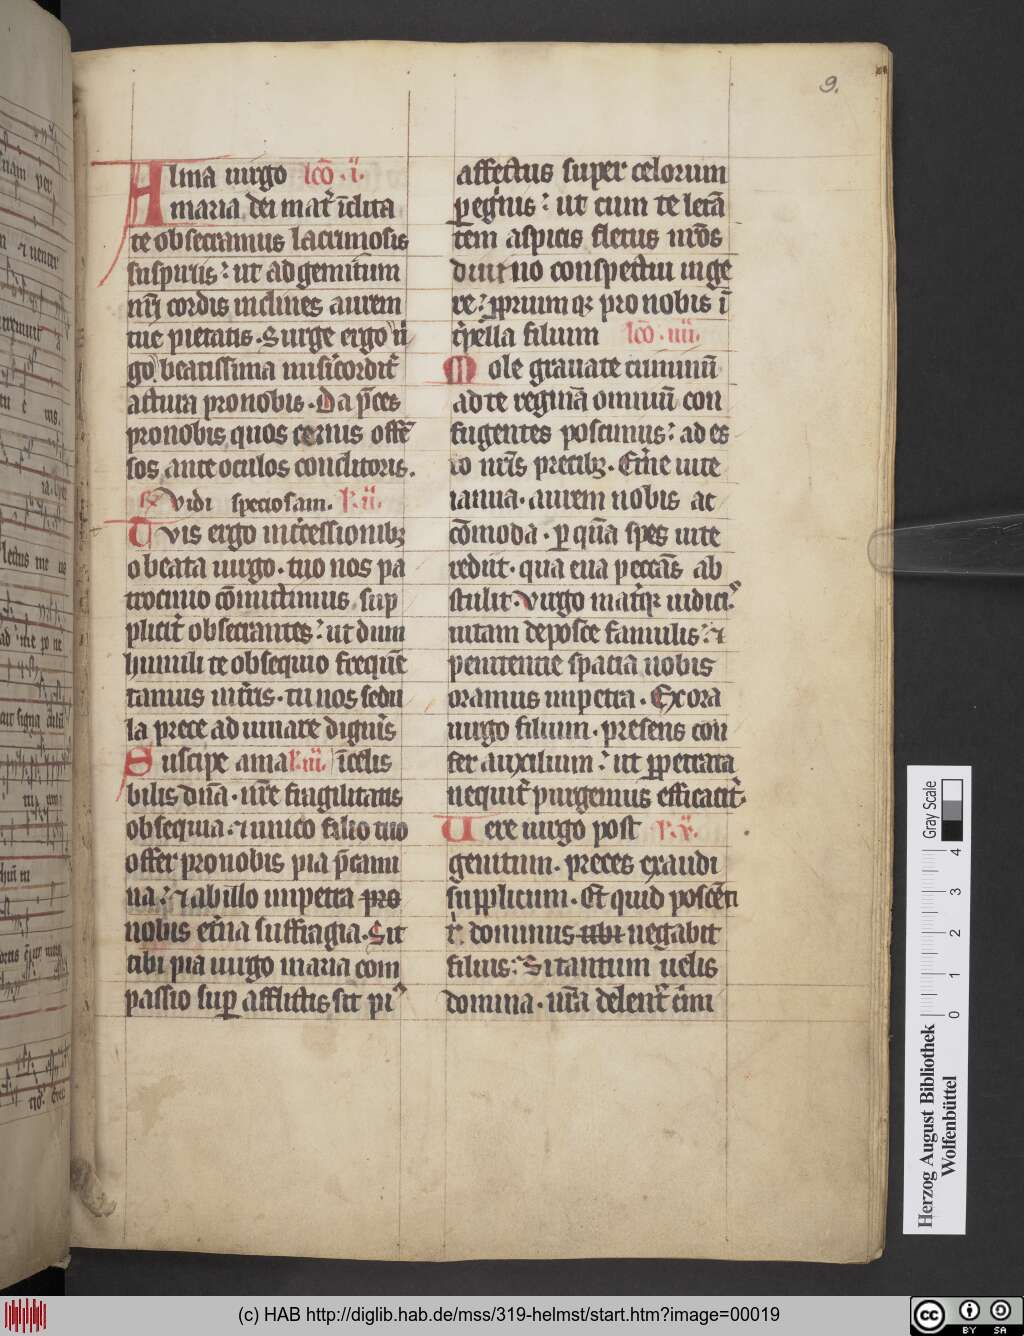 9.
Alma uirgo lcō .i.
maria dei mat᷑ īclita
te obsecramus lacrimosis
suspiriis: ut ad gemitum
nr̄i cordis inclines aurem
tue pietatis. Surge ergo ui᷑
go beatissima mis᷑icordit᷑
actura pro nobis. Da p̄ces
pro nobis quos cernis offē
sos ante oculos conditoris.
Vidi speciosam. ii.
Tvis ergo int᷑cessionibꝫ
o beata uirgo. tuo nos pa
trocinio cōmittimus sup
plicit᷑ obsecrantes: ut dum
humili te obsequio frequē
tamus in t᷑ris. tu nos sedu
la prece adiuuare digneris
Suscipe ama iii. īcelis
bilis dn̄a. nr̄e fragilitatis
obsequia. ⁊ unico filio tuo
offer pro nobis pia p̄cami
na: ⁊ ab illo impetra pro
nobis et᷑na suffragia. Sit
tibi pia uirgo maria com
passio suꝑ afflictis sit pi᷑
affectus super celorum
ꝑegrinis: ut cum te letā
tem aspicis fletus nr̄os
diuino conspectui inge
re: ꝓpriumqꝫ pro nobis ī
t᷑pella filium lcō .iiii.
Mole grauate criminū
ad te reginā omniū con
fugentes poscimus: ad es
to nr̄is precibꝫ. Et᷑ne uite
ianua. aurem nobis ac
cōmoda. ꝑ quā spes uite
rediit. qua eua peccās ab
stulit. Virgo mat᷑qꝫ iudici᷑.
uitam deposce famulis: ⁊
penitentie spatia nobis
oramus impetra. Exora
uirgo filium. presens con
fer auxilium: ut ꝑpetrata
nequit᷑ purgemus efficacit᷑.
Uere uirgo post
genitum. preces exaudi
supplicum. Et quid poscēti
dominus tibi negabit
filius: Si tantum uelis
domina. nr̄a delent᷑ c᷑mi
Gray Scale
0 1 2 3 4
Herzog August Bibliothek
Wolfenbüttel
(c) HAB http://diglib.hab.de/mss/319-helmst/start.htm?image=00019
cc BY SA